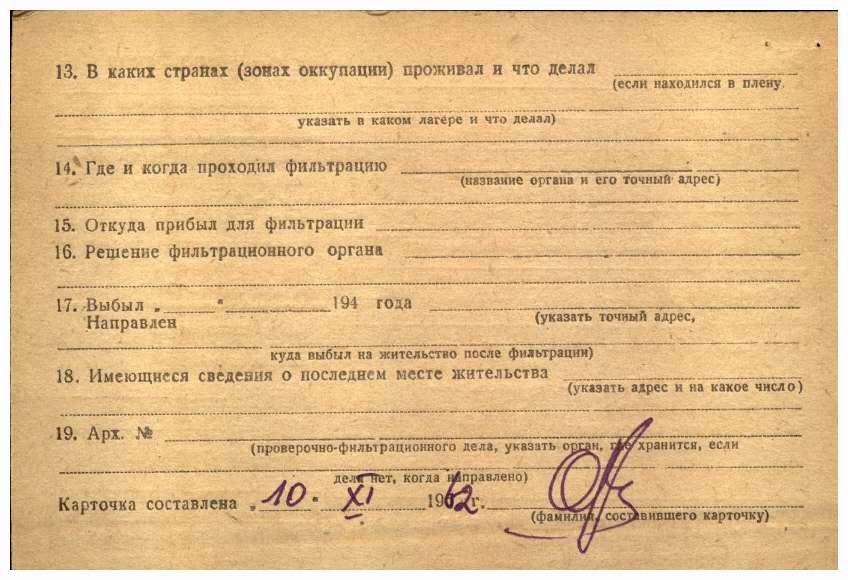 13. В каких странах (зонах оккупации) проживал и что делал
(если находился в плену
указать в каком лагере и что делал)
14. Где и когда проходил фильтрацию
(название органа и его точный адрес)
15. Откуда прибыл для фильтрации
16. Решение фильтрационного органа
17. Выбыл „ “ 194 года
(указать точный адрес,
Направлен
куда выбыл на жительство после фильтрации)
18. Имеющиеся сведения о последнем месте жительства
(указать адрес и на какое число)
19. Арх. №
(проверочно-фильтрационного дела, указать орган, где хранится, если
дела нет, когда направлено)
Карточка составлена „10“ XI 1962 г.
(фамилия, составившего карточку)